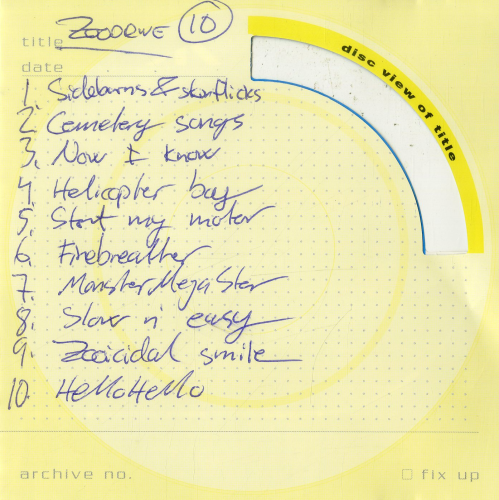 title Zoodrive 10
disc view of title
date
1. Sideburns & skinflicks
2. Cemetery songs
3. Now I know
4. Helicopter bay
5. Start my motor
6. Firebreather
7. MonsterMegaStar
8. Slow n' easy
9. Zooicidal smile
10. HelloHello
archive no.
fix up